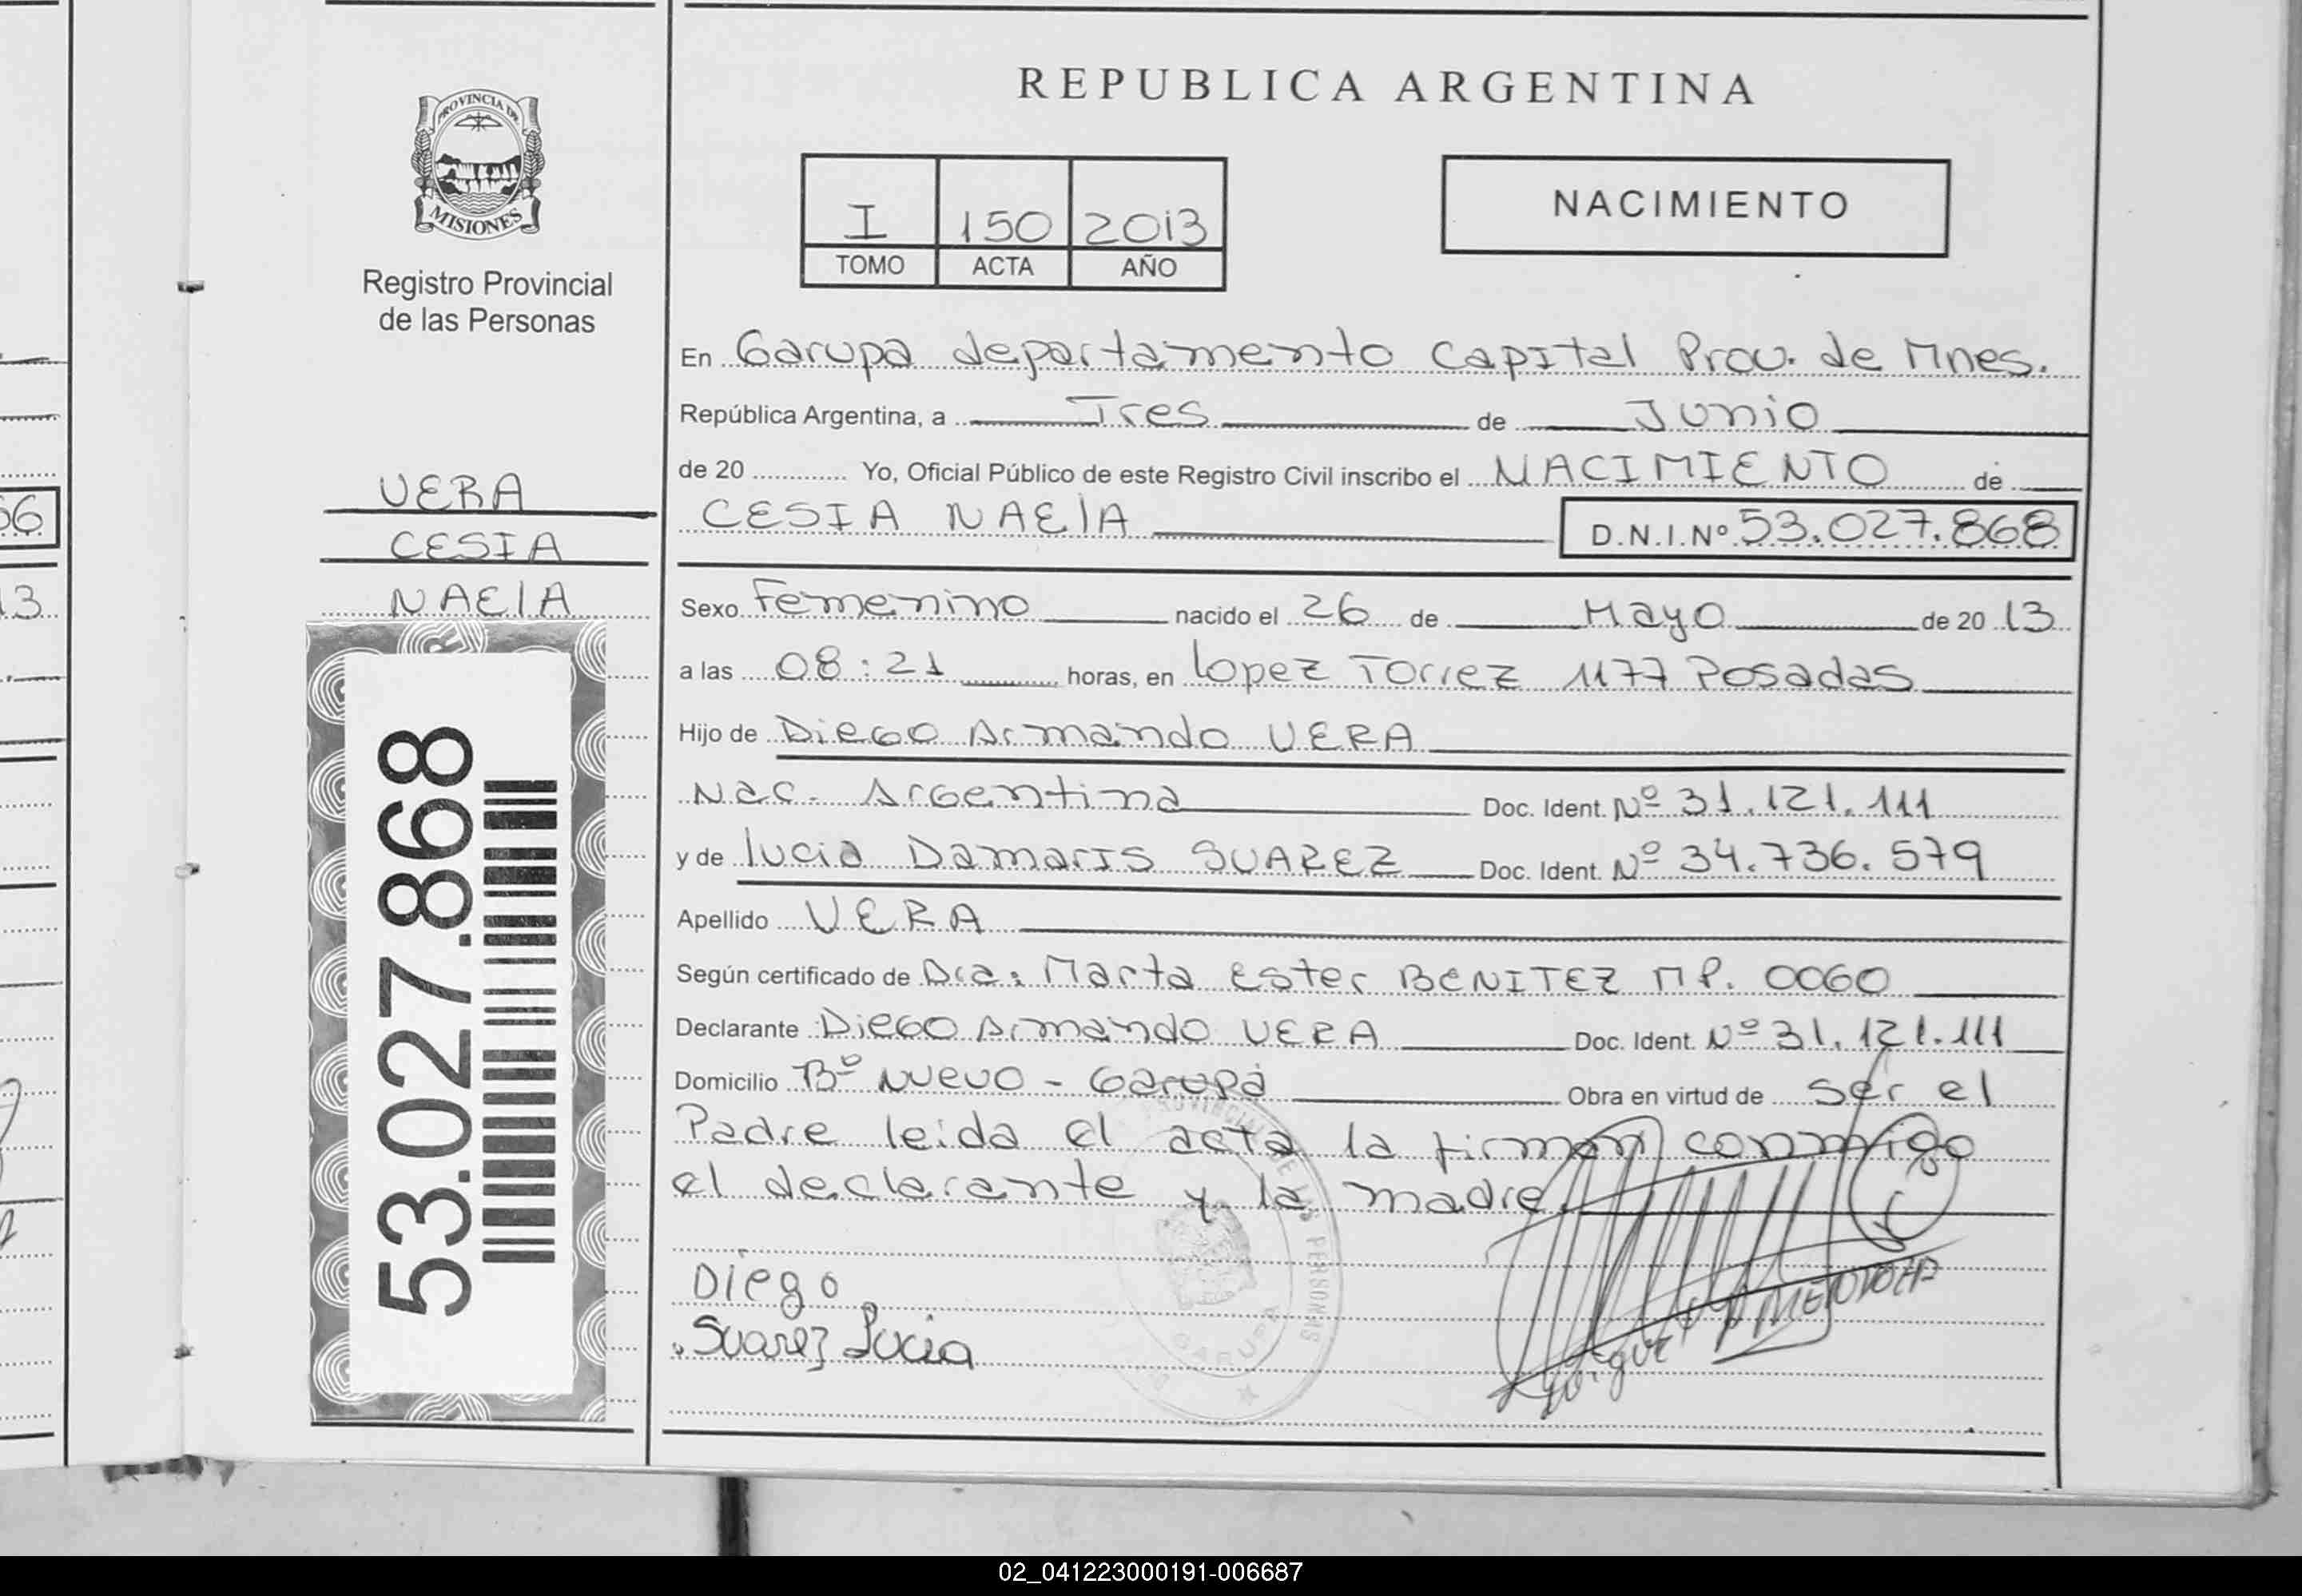 REPUBLICA ARGENTINA
PROVINCIA DE
MISIONES
Registro Provincial
de las Personas
I 150 2013
TOMO ACTA AÑO
NACIMIENTO
En Garupa departamento Capital Prov. de Mnes.
República Argentina, a Tres de Junio
de 20 Yo, Oficial Público de este Registro Civil inscribo el NACIMIENTO de
CESIA NAElA D.N.I.Nº 53.027.868
VERA
CESIA
NAElA
53.027.868
Sexo Femenino nacido el 26 de Mayo de 20 13
a las 08:21 horas, en Lopez Torrez 1177 Posadas
Hijo de Diego Armando VERA
Nac. Argentina Doc. Ident. Nº 31.121.111
y de Lucia Damaris SUAREZ Doc. Ident. Nº 34.736.579
Apellido VERA
Según certificado de Dra: Marta Ester BENITEZ MP. 0060
Declarante Diego Armando VERA Doc. Ident. Nº 31.121.111
Domicilio Bº Nuevo - Garupá Obra en virtud de ser el
Padre leida el acta la firman conmigo
el declarante y la madre.
Diego
Suarez Lucia
PROVINCIAL DE LAS PERSONAS
GARUPA
66
13
02_041223000191-006687